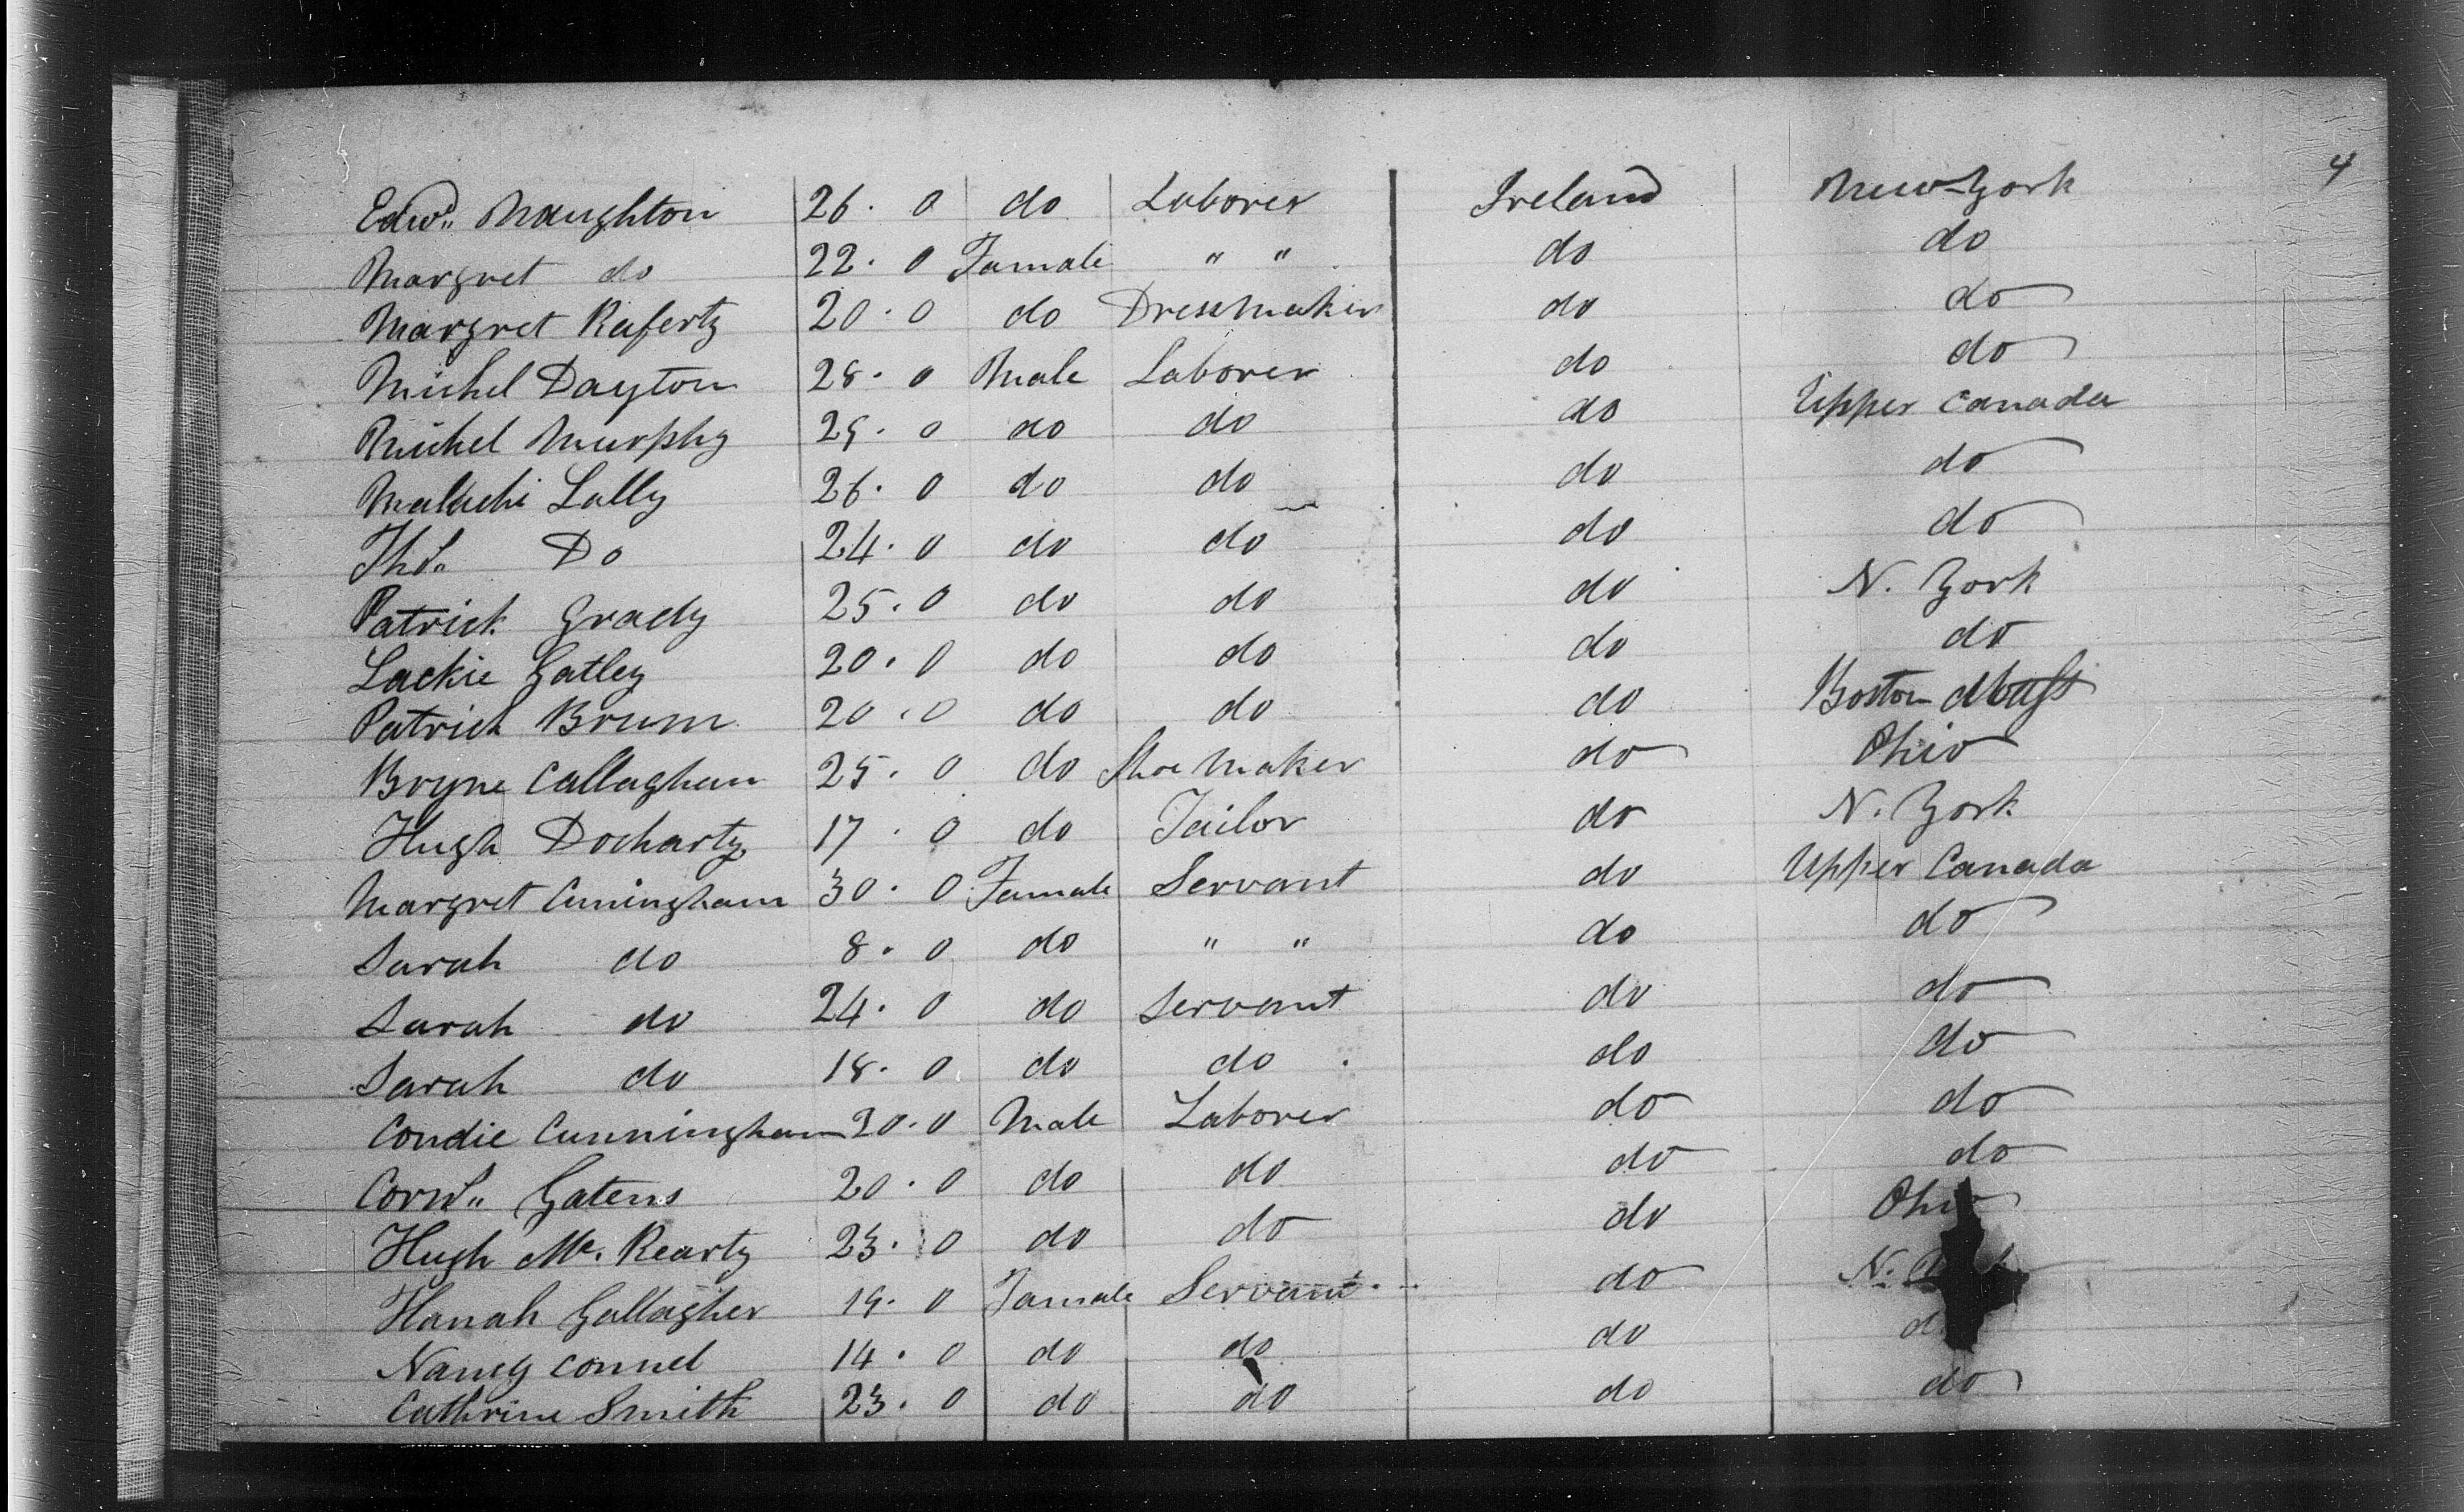 4
Edwd. Naughton 26. 0 do Laborer Ireland New York
Margret do 22. 0 Famale " " do do
Margret Raferty 20. 0 do Dressmaker do do
Michel Dayton 28. 0 Male Laborer do do
Michel Murphy 25. 0 do do do Upper Canada
Malachi Lally 26. 0 do do do do
Thos. Do 24. 0 do do do do
Patrick Grady 25. 0 do do do N. York
Lackie Gatley 20. 0 do do do do
Patrick Brum 20. 0 do do do Boston Mass
Bryne Callaghan 25. 0 do Shoe Maker do Ohio
Hugh Docharty 17. 0 do Tailor do N. York
Margret Cuningham 30. 0 Famale Servant do Upper Canada
Sarah do 8. 0 do " " do do
Sarah do 24. 0 do Servant do do
Sarah do 18. 0 do do do do
Condie Cunningham 20. 0 Male Laborer do do
Gatens 20. 0 do do do do
Hugh Mc. Rearty 23. 0 do do do Ohio
Hanah Gallagher 19. 0 Famale Servant do N.
Nancy Connel 14. 0 do do do
Cathrine Smith 23. 0 do do do do